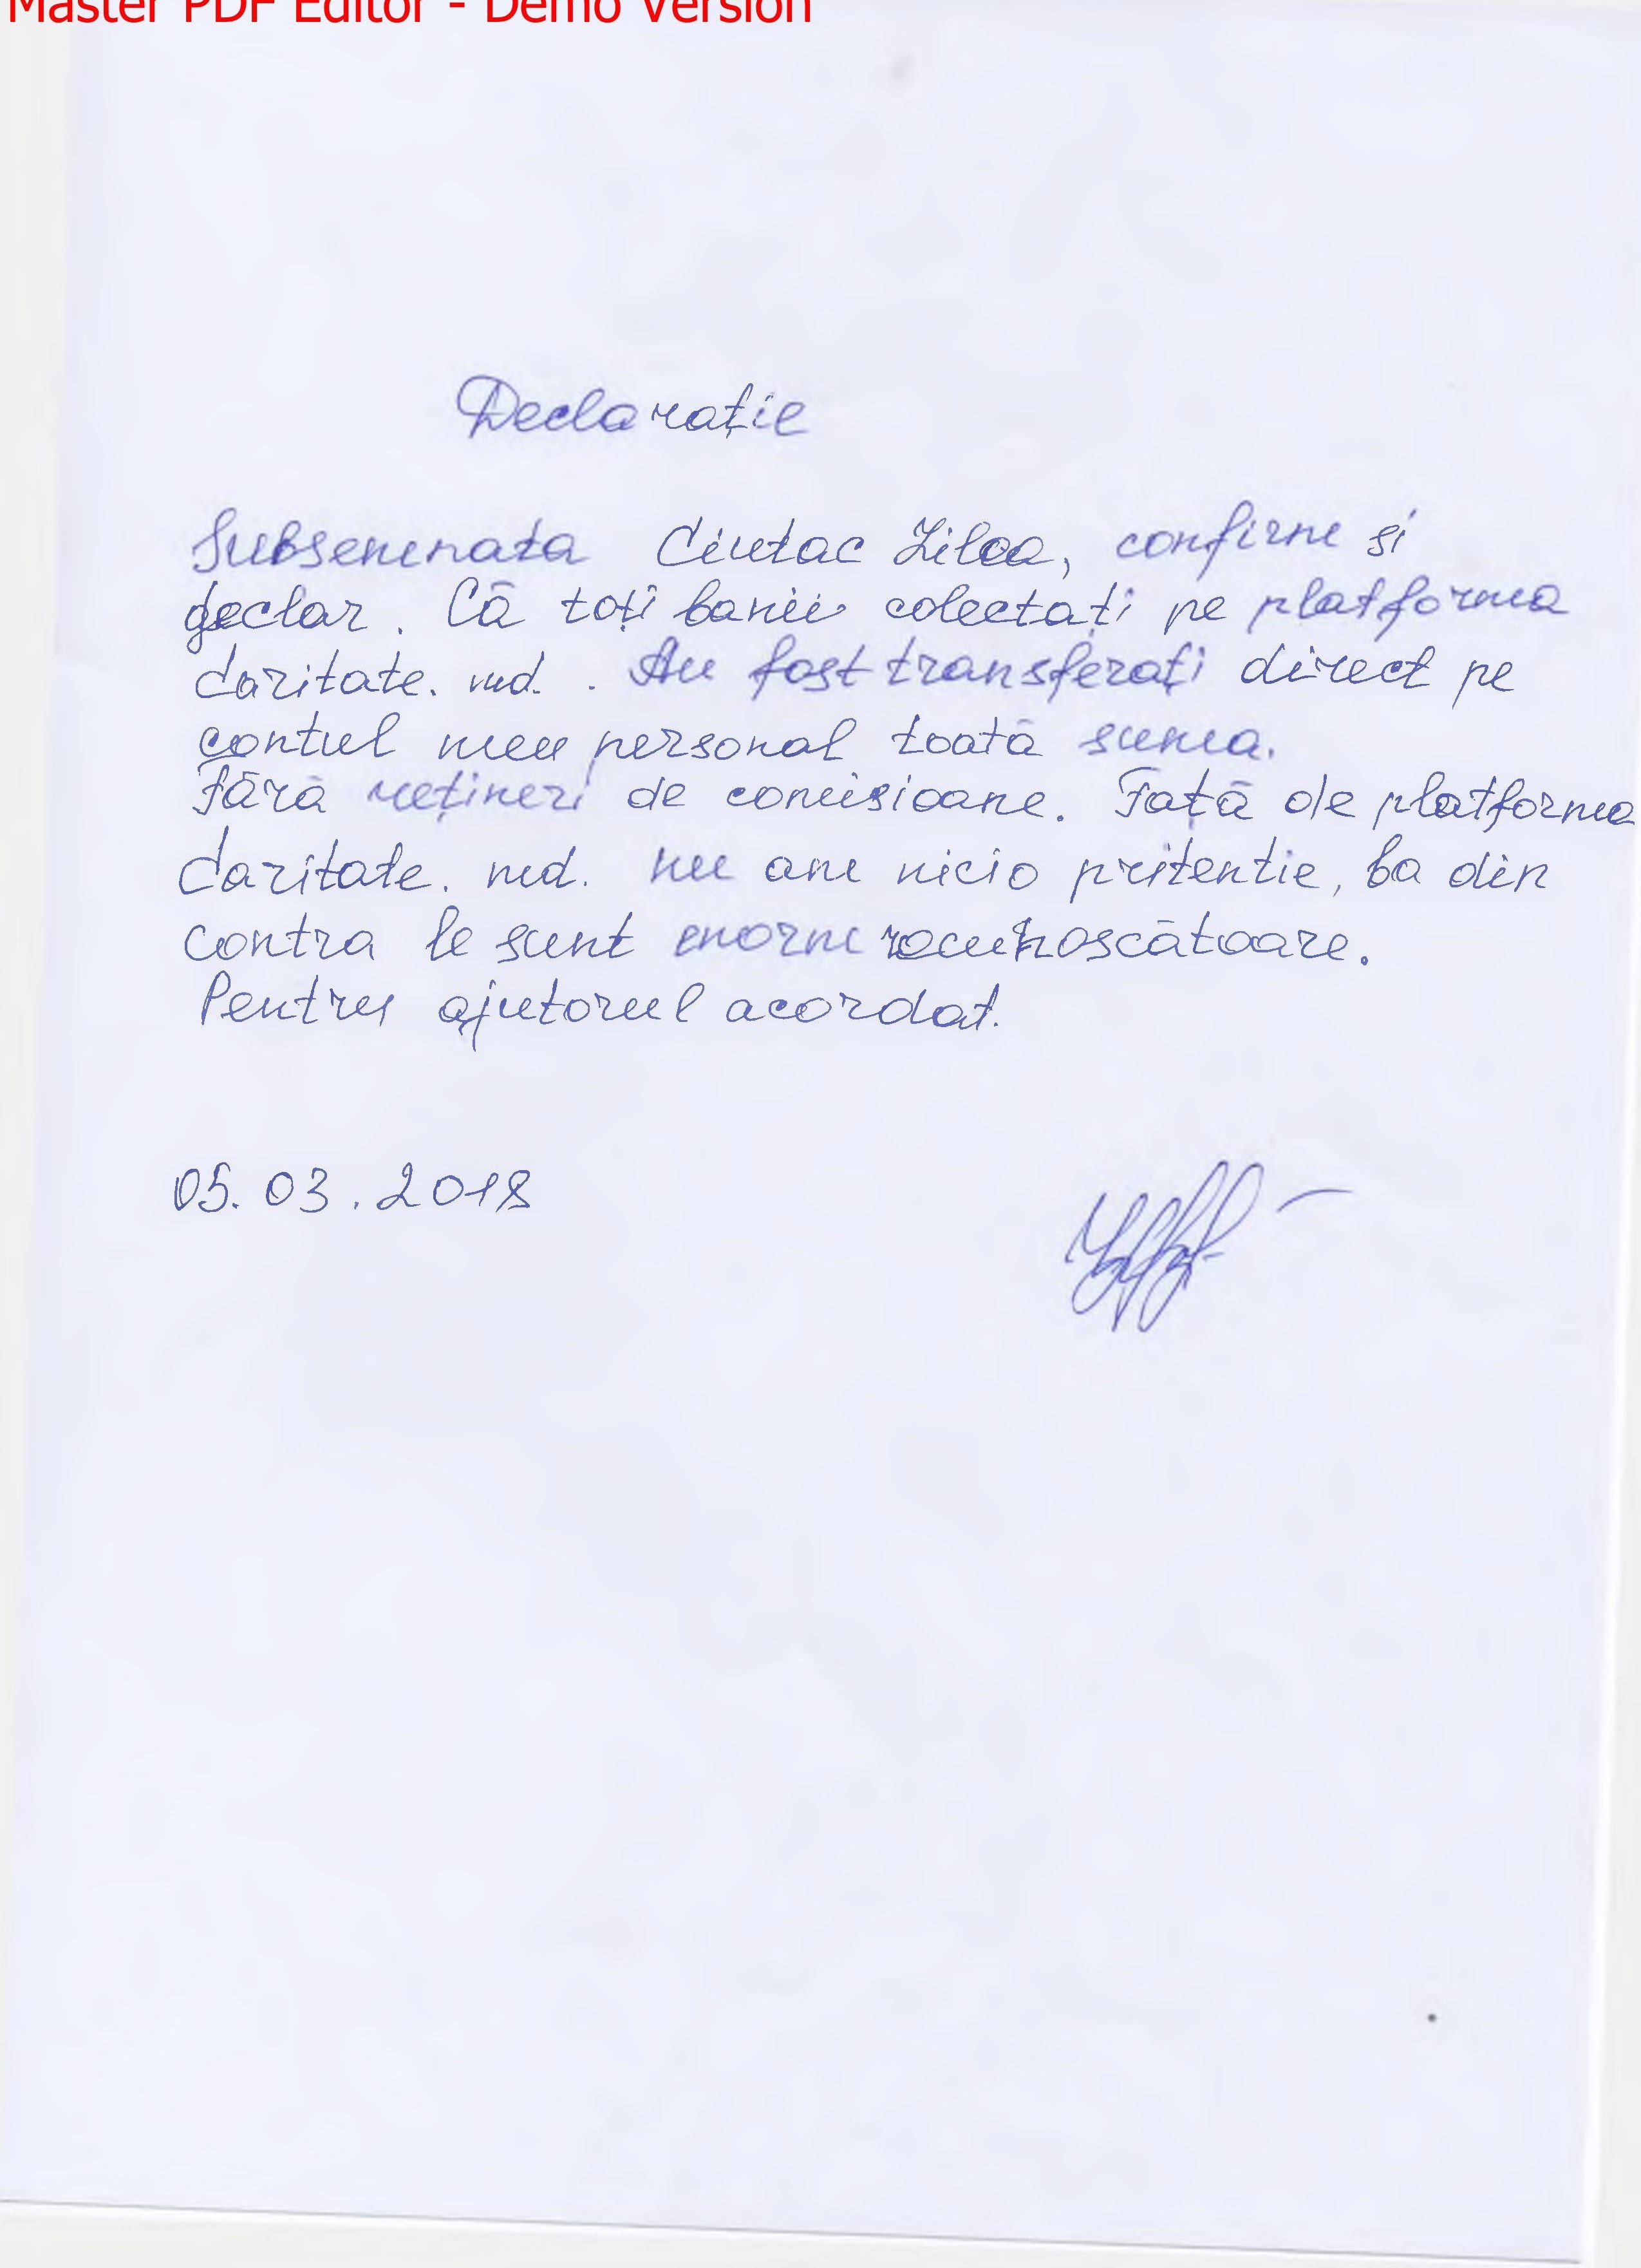 Master PDF Editor - Demo Version
Declarație
Subsemnata Ciutac Lilea, confirm si
declar. Că toți banii colectați pe platforma
Caritate. md. . Au fost transferați direct pe
contul meu personal toată suma.
Fără rețineri de comisioane. Față de platforma
Caritate. md. nu am nicio pritentie, ba din
contra le sunt enorm recunoscătoare.
Pentru ajutorul acordat.
05. 03. 2018